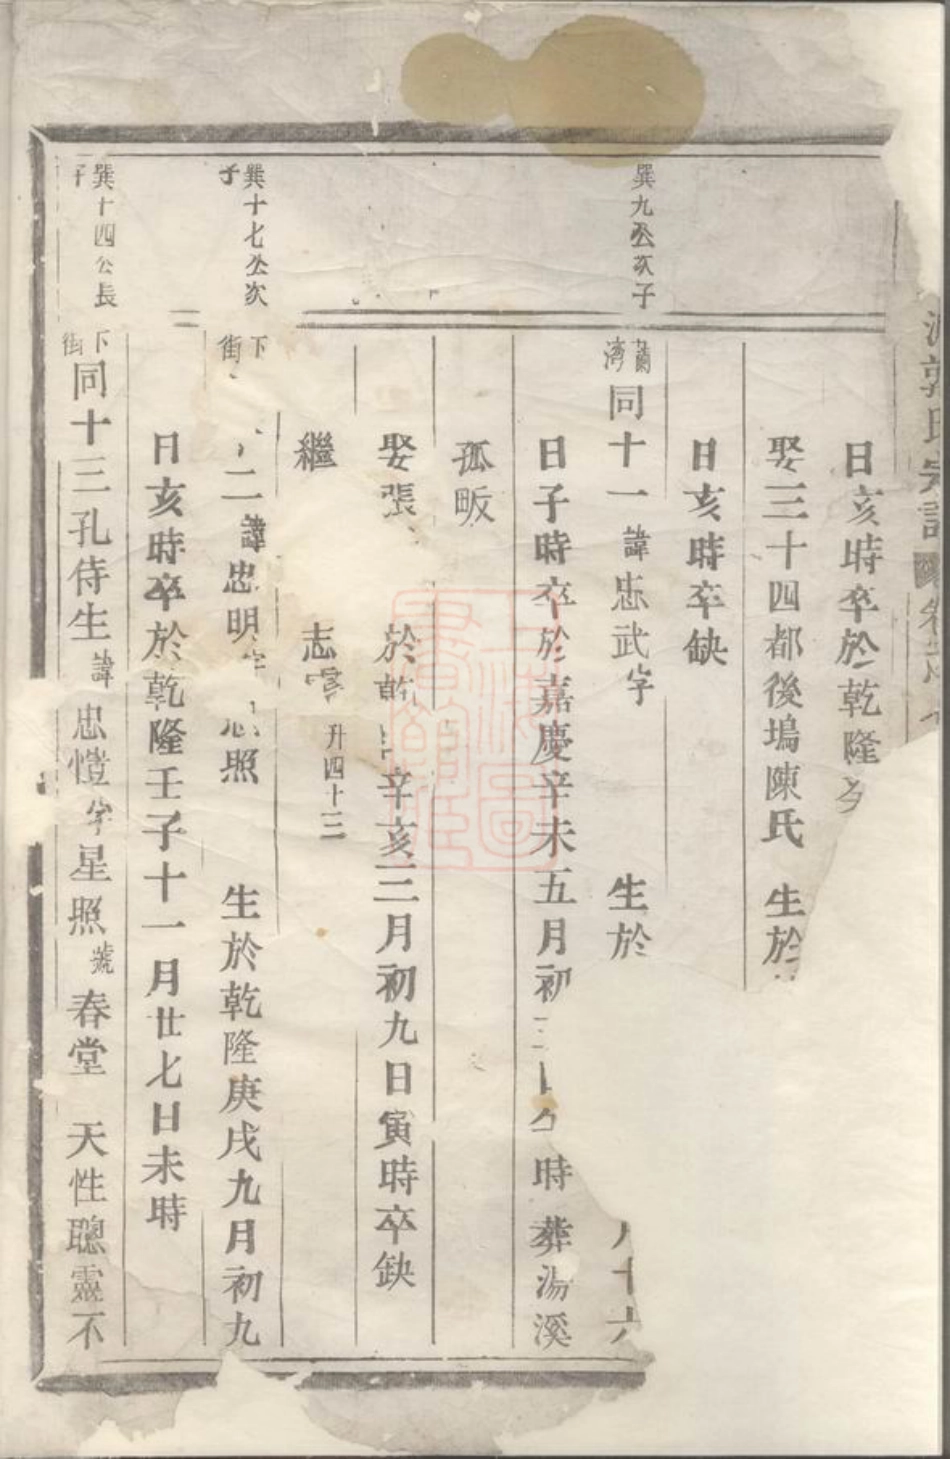 郭氏宗譜
日亥時卒於乾隆
娶三十四都後塢陳氏 生於
日亥時卒缺
巽九公次子
蘭灣
同十一諱忠武字 生於 十六
日子時卒於嘉慶辛未五月初 時葬湯溪
孤畈
娶張 於乾 辛亥三月初九日寅時卒缺
繼 志 升四十三
巽十七公次子
下街
二諱忠明字 照 生於乾隆庚戌九月初九
日亥時卒於乾隆壬子十一月廿七日未時
巽十四公長子
下街
同十三孔侍生諱忠愷字星照號春堂 天性聰靈不